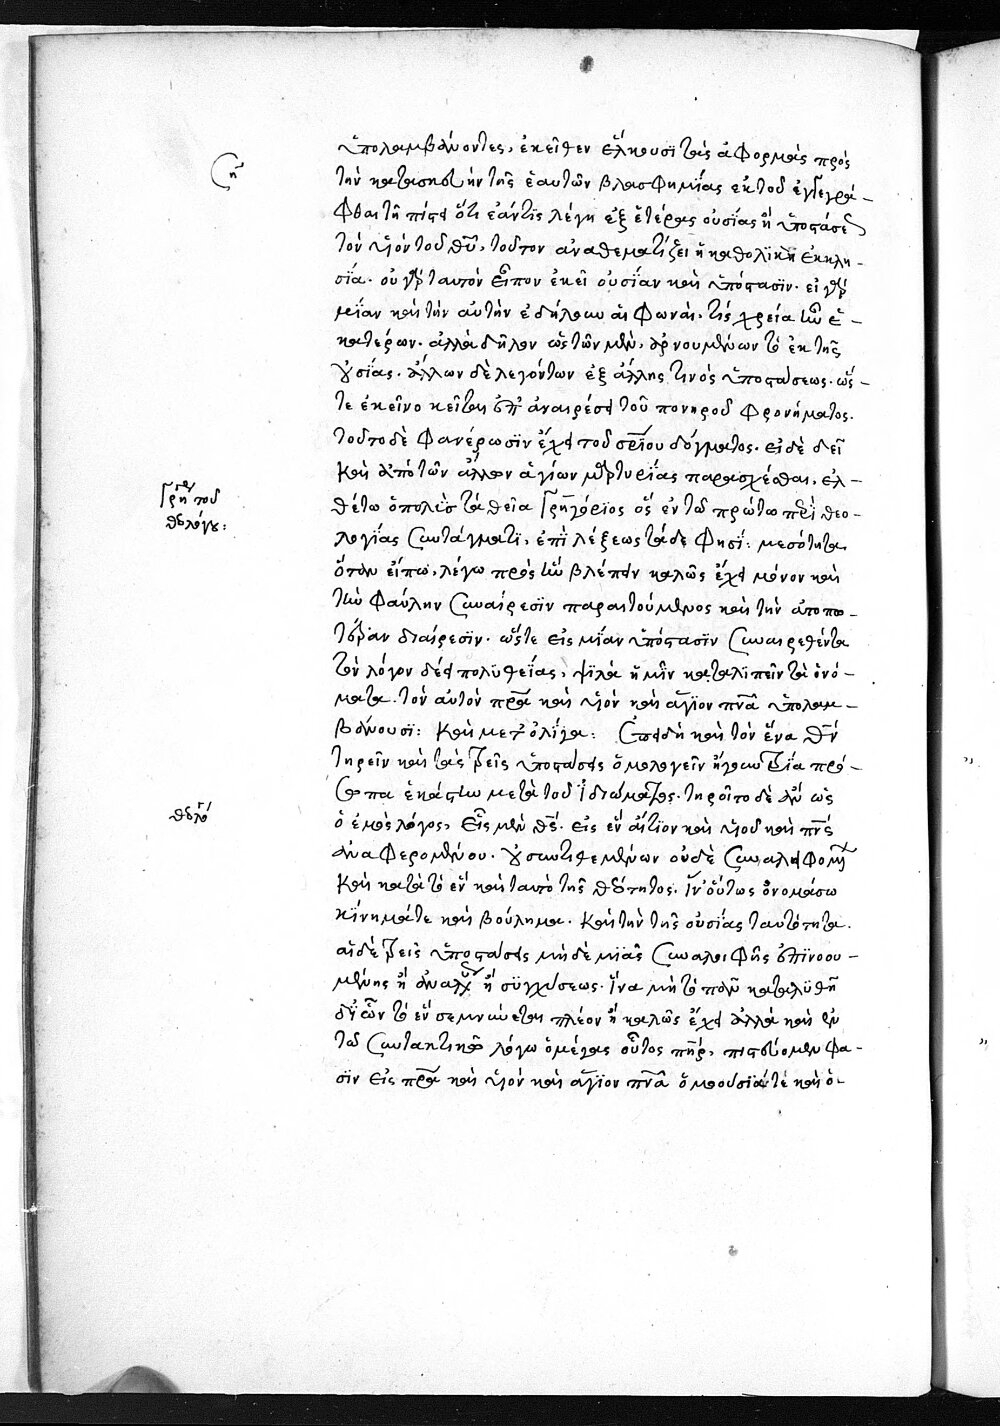 ὑπολαμβάνοντες, ἐκεῖθεν ἕλκουσι τὰς ἀφορμὰς πρὸς
ση
τὴν κατασκευὴν τῆς ἑαυτῶν βλασφημίας ἐκ τοῦ ἐγγεγρά-
φθαι τῇ πίστει ὅτι ἐάν τις λέγῃ ἐξ ἑτέρας οὐσίας ἢ ὑποστάσεως
τὸν υἱὸν τοῦ θυ, τοῦτον ἀναθεματίζει ἡ καθολικὴ ἐκκλη-
σία. οὐ γὰρ ταυτὸν εἶπον ἐκεῖ οὐσίαν καὶ ὑπόστασιν. εἰ γὰρ
μίαν καὶ τὴν αὐτὴν ἐδήλουν αἱ φωναὶ, τίς χρεία ἦν ἑ-
κατέρων. ἀλλὰ δῆλον ὡς τῶν μὲν, ἀρνουμένων τὸ ἐκ τῆς
οὐσίας. ἄλλων δὲ λεγόντων ἐξ ἄλλης τινὸς ὑποστάσεως. ὥσ-
τε ἐκεῖνο κεῖται ἐπ' ἀναιρέσει τοῦ πονηροῦ φρονήματος.
τοῦτο δὲ φανέρωσιν ἔχει τοῦ σρίου δόγματος. εἰ δὲ δεῖ
καὶ ἀπὸ τῶν ἄλλων ἁγίων μαρτυρίας παρασχέσθαι, ἐλ-
Γρηγ τοῦ
θεολόγου:
θέτω ὁ πολὺς τὰ θεῖα Γρηγόριος ὃς ἐν τῷ πρώτῳ περὶ θεο-
λογίας συντάγματι, ἐπὶ λέξεως τάδε φησί: μεσότητα
ὅταν εἴπω, λέγω πρὸς ἣν βλέπειν καλῶς ἔχει μόνον καὶ
τὴν φαύλην συναίρεσιν παραιτούμενος καὶ τὴν ἀτοπω-
τέραν διαίρεσιν. ὥστε εἰς μίαν ὑπόστασιν συναιρεθέντα
τὸν λόγον δέει πολυθεΐας, ψιλὰ ἡμῖν καταλιπεῖν τὰ ὀνό-
ματα. τὸν αὐτὸν πρα καὶ υἱὸν καὶ ἅγιον πνα ὑπολαμ-
βάνουσι: καὶ μετ' ὀλίγα: ἐπειδὴ καὶ τὸν ἕνα θν
τηρεῖν καὶ τὰς τρεῖς ὑποστάσεις ὁμολογεῖν ἤγουν τρία πρό-
σωπα ἑκάστην μετὰ τοῦ ἰδιώματος. τηροῖτο δὲ ἂν ὡς
θεολό
ὁ ἐμὸς λόγος, εἷς μὲν θς. εἰς ἓν αἴτιον καὶ υἱοῦ καὶ πνς
ἀναφερομένου. οὐ συντιθεμένων οὐδὲ συναλειφομένων
καὶ κατὰ τὸ ἓν καὶ ταυτὸ τῆς θεότητος. ἵν' οὕτως ὀνομάσω
κίνημά τε καὶ βούλημα. καὶ τὴν τῆς οὐσίας ταυτότητα.
αἱ δὲ τρεῖς ὑποστάσεις μὴ δὲ μιᾶς συναλοιφῆς ἐπινοου-
μένης ἢ ἀναλύσεως ἢ συγχύσεως. ἵνα μὴ τὸ πᾶν καταλυθῇ
δι' ὧν τὸ ἓν σεμνύνεται πλέον ἢ καλῶς ἔχει ἀλλὰ καὶ ἐν
τῷ συντακτικῷ λόγῳ ὁ μέγας οὗτος πηρ, πιστεύομεν φα-
σὶν εἰς πρα καὶ υἱὸν καὶ ἅγιον πνα ὁμοούσιά τε καὶ ὁ-